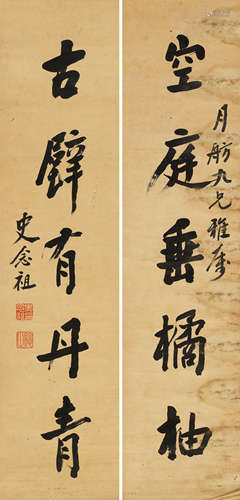 空庭垂橘柚
月舫九兄雅屬
古壁有丹青
史念祖